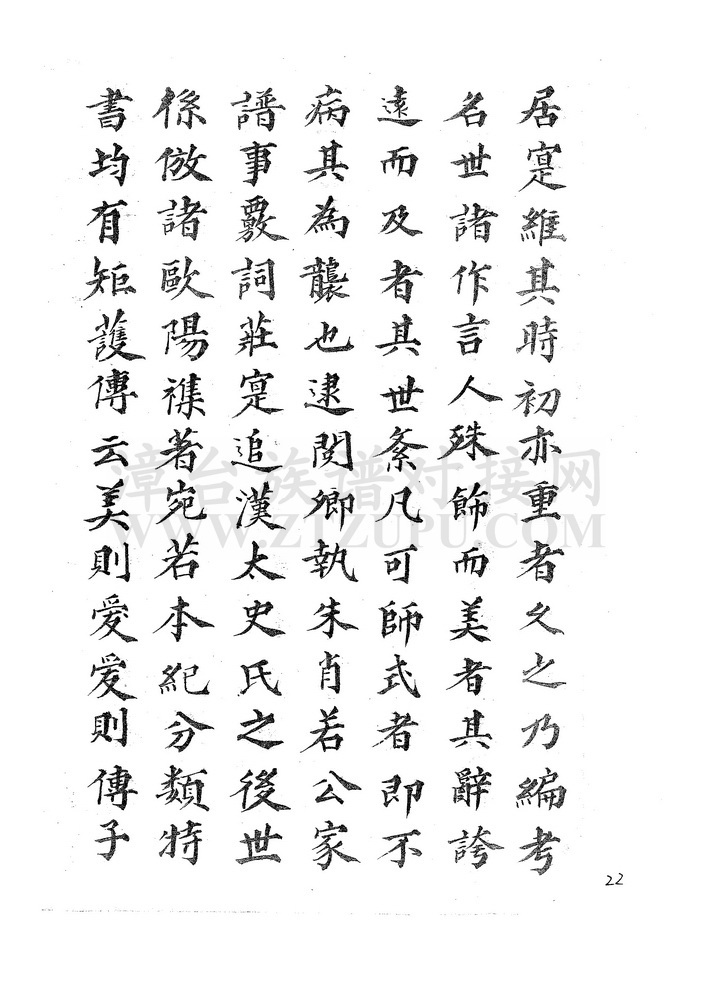 居寔維其時初亦重者久之乃編考
名世諸作言人殊飾而美者其辭誇
遠而及者其世紊凡可師式者即不
病其為襲也逮閱卿執朱肖若公家
譜事覈詞莊寔追漢太史氏之後世
係倣諸歐陽襍著宛若本紀分類特
書均有矩蒦傳云美則愛愛則傳子
漳台族谱对接网
WWW.ZTZUPU.COM
22